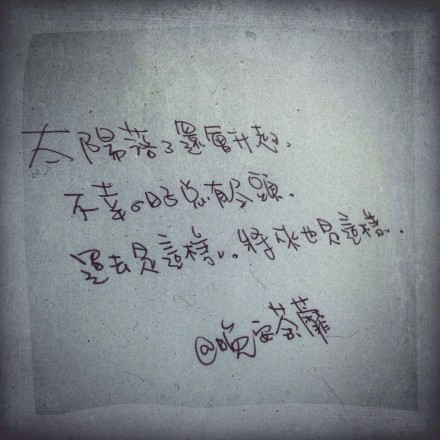 太陽落了還會升起、
不幸的日子总有尽頭、
過去是這樣。將來也是這樣、
@晚安荼蘼